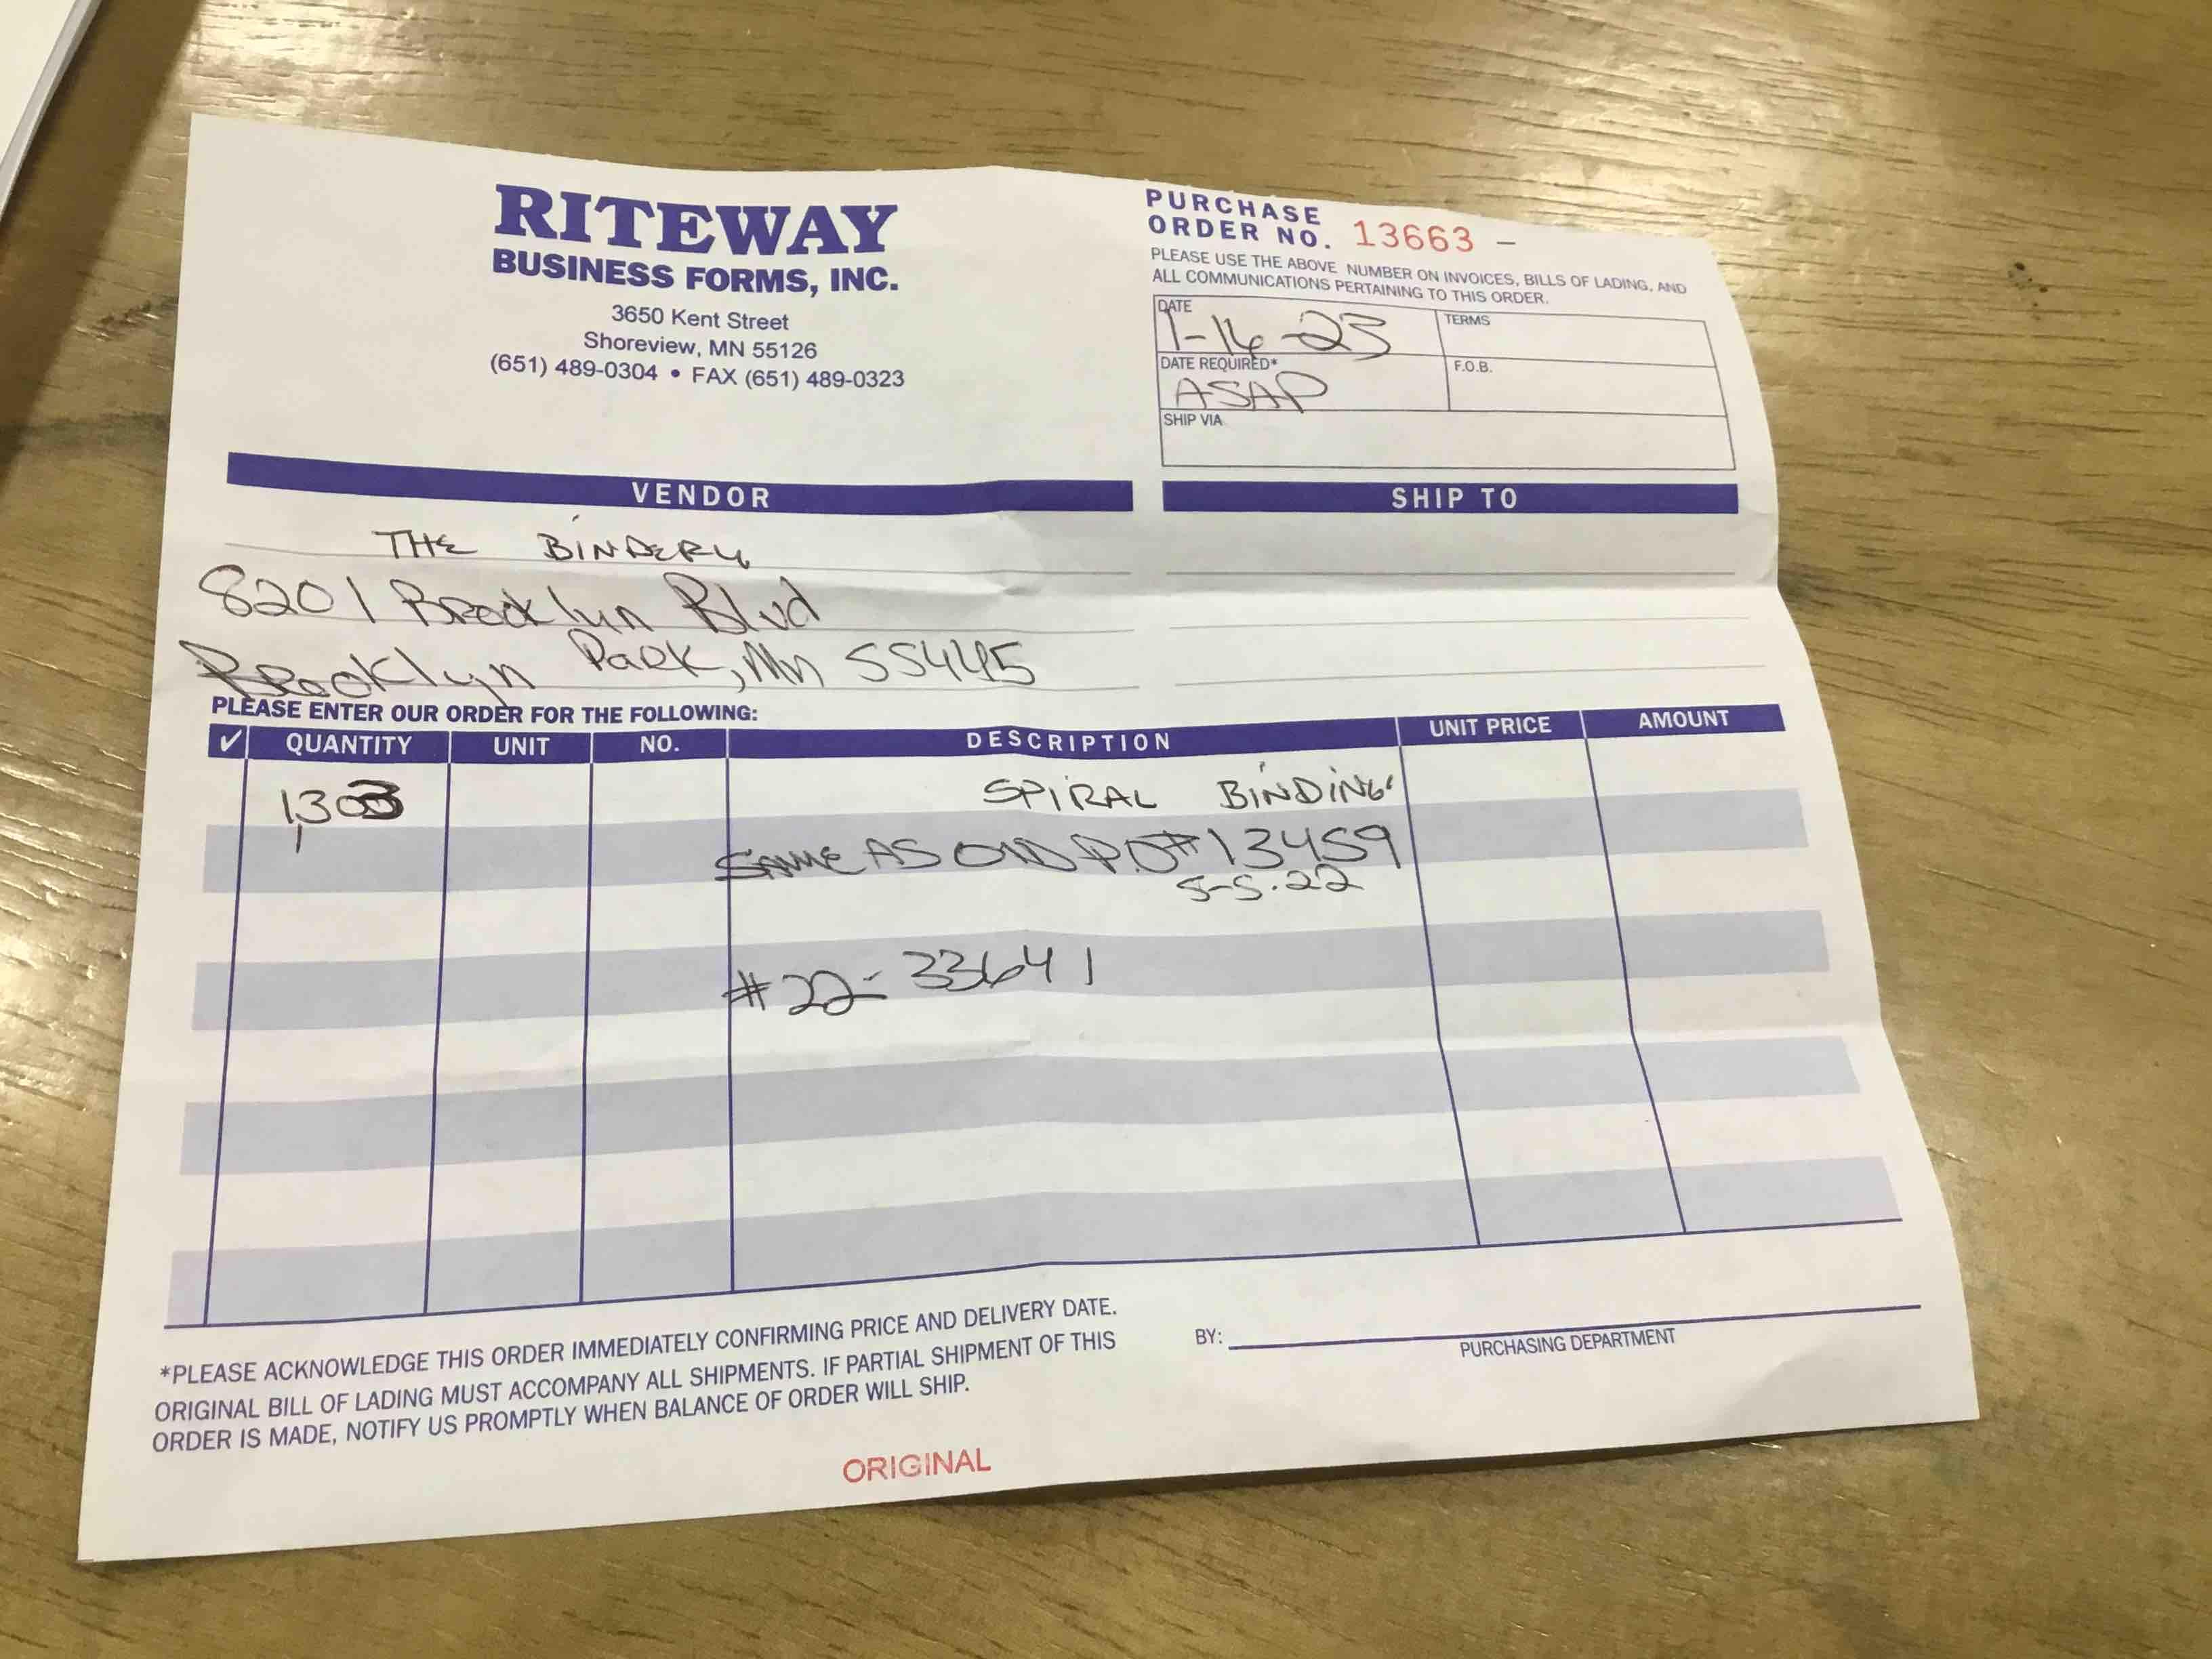 RITEWAY
BUSINESS FORMS, INC.
3650 Kent Street
Shoreview, MN 55126
(651) 489-0304 • FAX (651) 489-0323
PURCHASE
ORDER NO. 13663 –
PLEASE USE THE ABOVE NUMBER ON INVOICES, BILLS OF LADING, AND
ALL COMMUNICATIONS PERTAINING TO THIS ORDER.
DATE
1-16-23
TERMS
DATE REQUIRED*
ASAP
F.O.B.
SHIP VIA
VENDOR
THE BINDERY
8201 Brooklyn Blvd
Brooklyn Park, Mn 55445
SHIP TO
PLEASE ENTER OUR ORDER FOR THE FOLLOWING:
✓ QUANTITY UNIT NO. DESCRIPTION UNIT PRICE AMOUNT
1,303 SPIRAL BINDING
SAME AS OLD P.O# 13459
5-5.22
#22-33641
*PLEASE ACKNOWLEDGE THIS ORDER IMMEDIATELY CONFIRMING PRICE AND DELIVERY DATE.
ORIGINAL BILL OF LADING MUST ACCOMPANY ALL SHIPMENTS. IF PARTIAL SHIPMENT OF THIS
ORDER IS MADE, NOTIFY US PROMPTLY WHEN BALANCE OF ORDER WILL SHIP.
BY:
PURCHASING DEPARTMENT
ORIGINAL